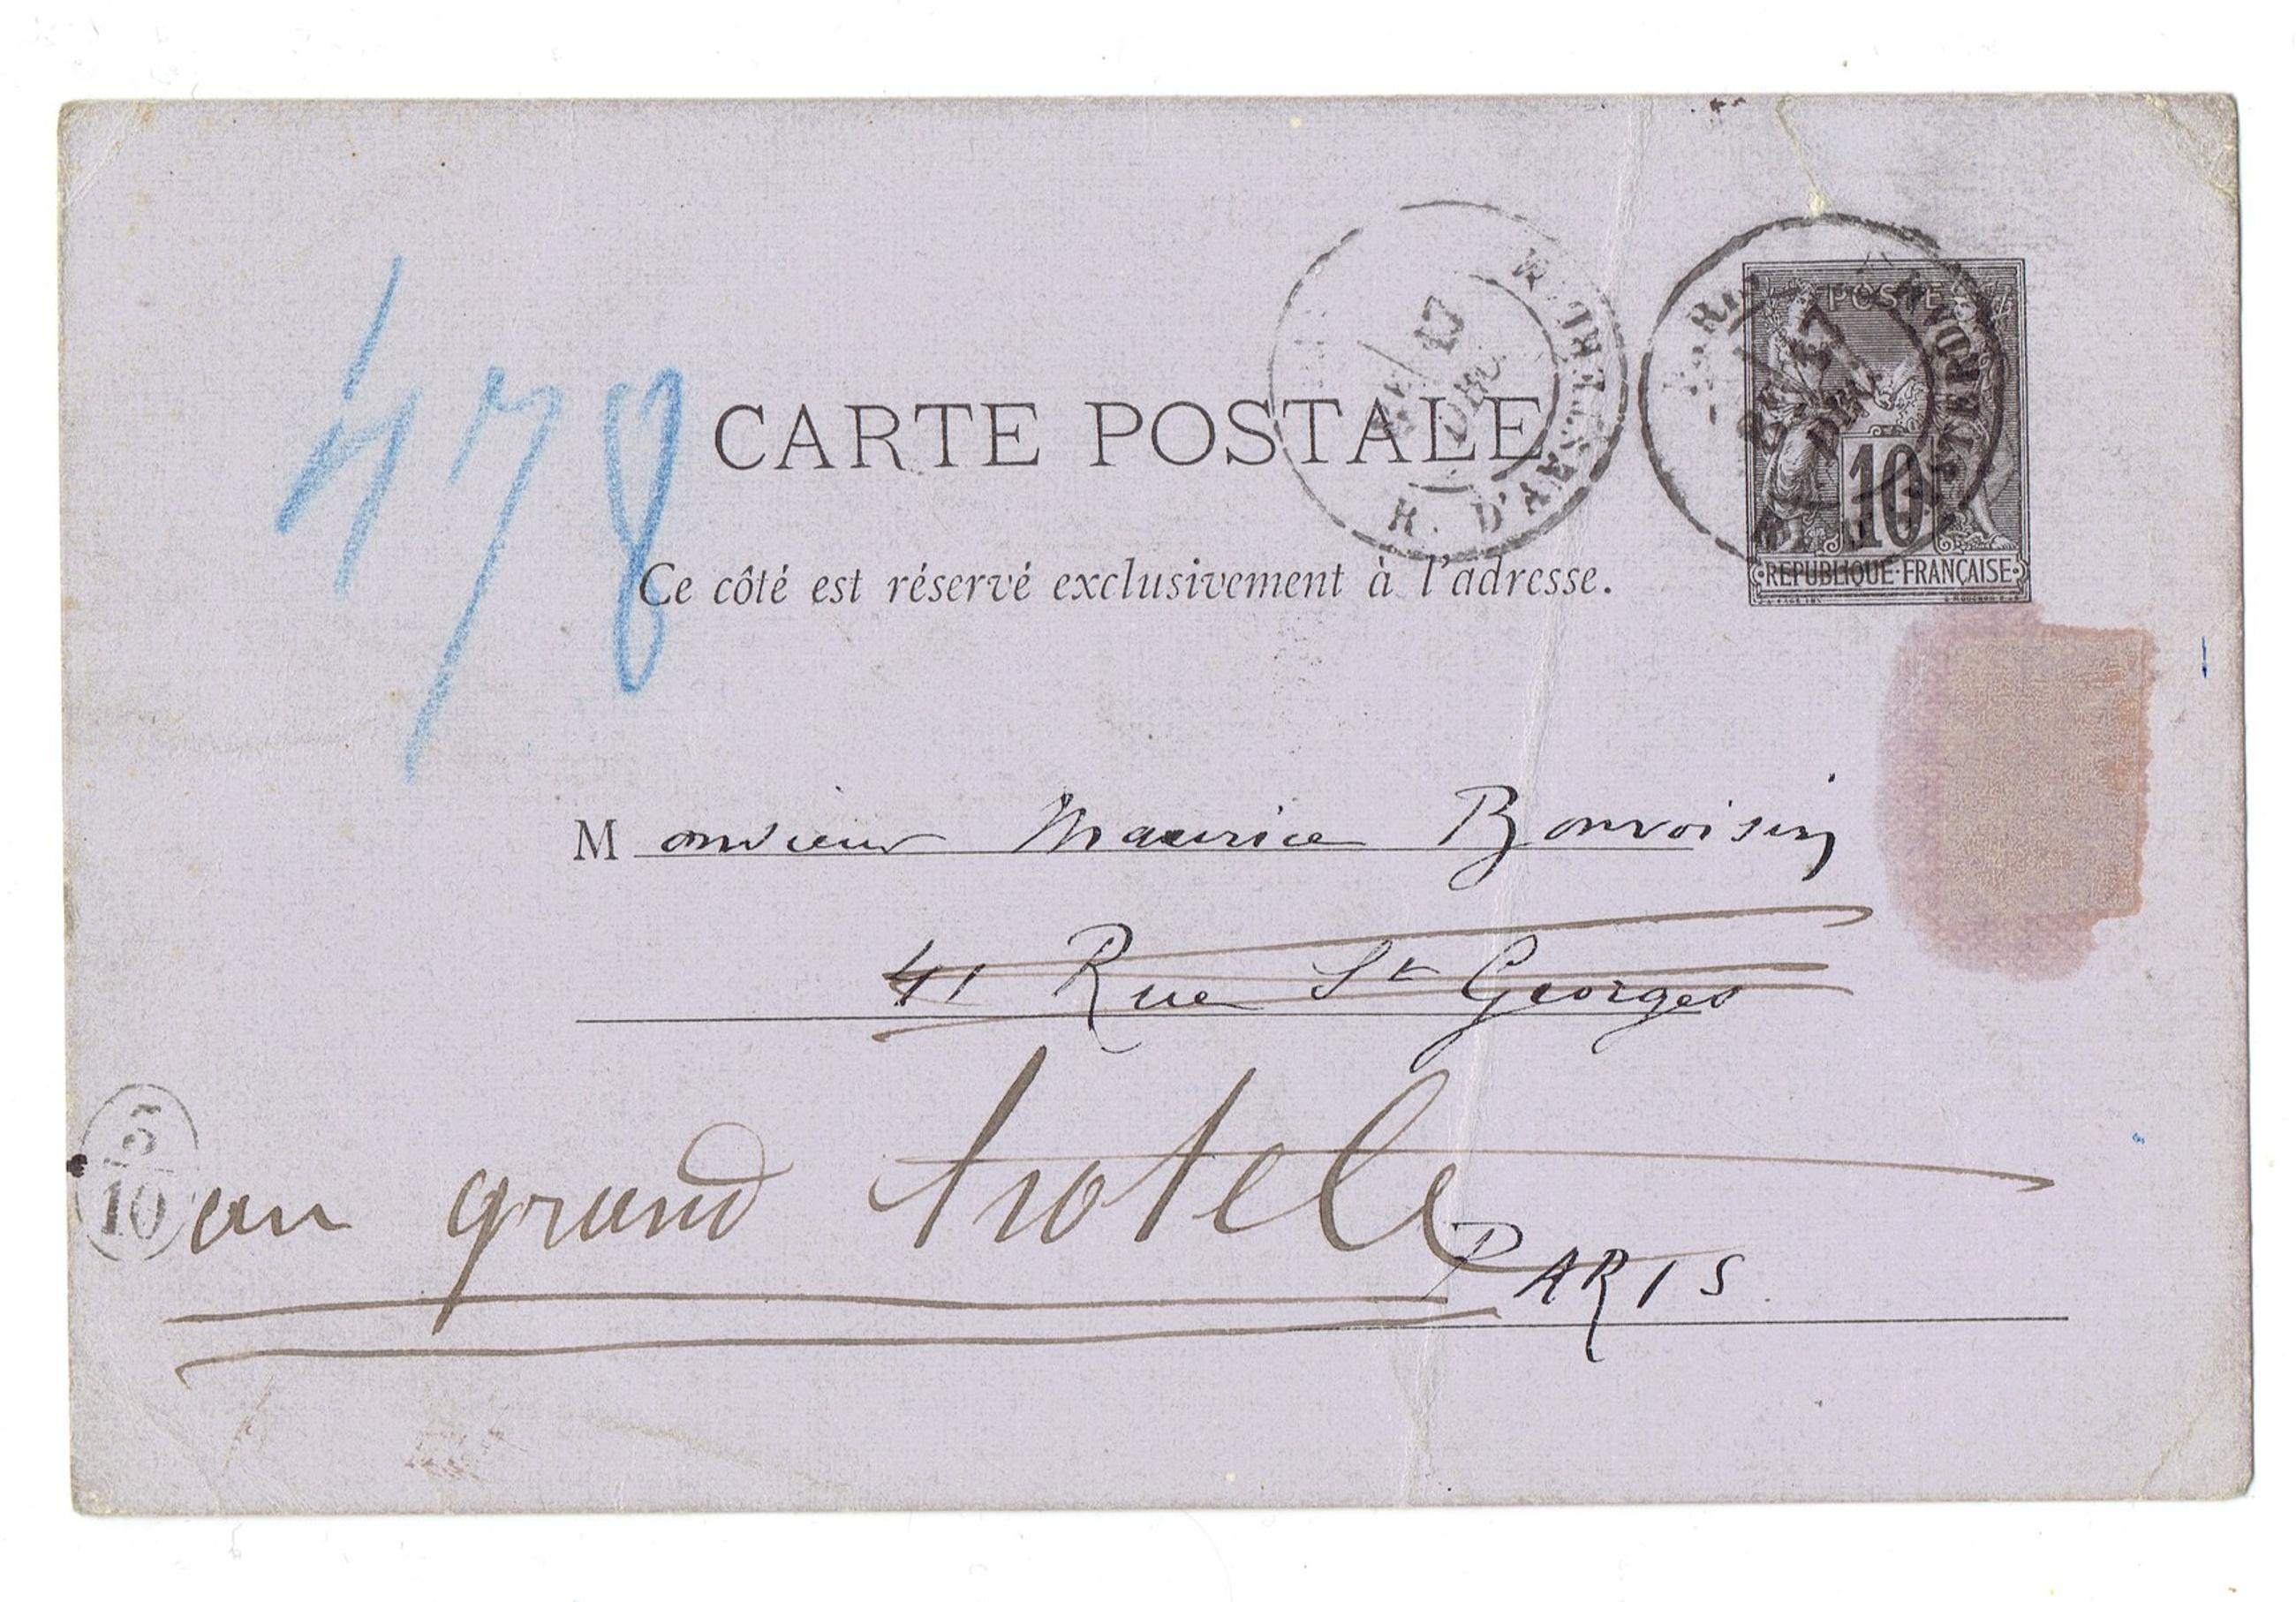 478
CARTE POSTALE
Ce côté est réservé exclusivement à l'adresse.
POSTE
10
RÉPUBLIQUE FRANÇAISE
17
DEC
R. D'AMSTERDAM
PARIS
17
Monsieur Maurice Bonvoisin
41 Rue St Georges
au grand hotel
PARIS
5
10